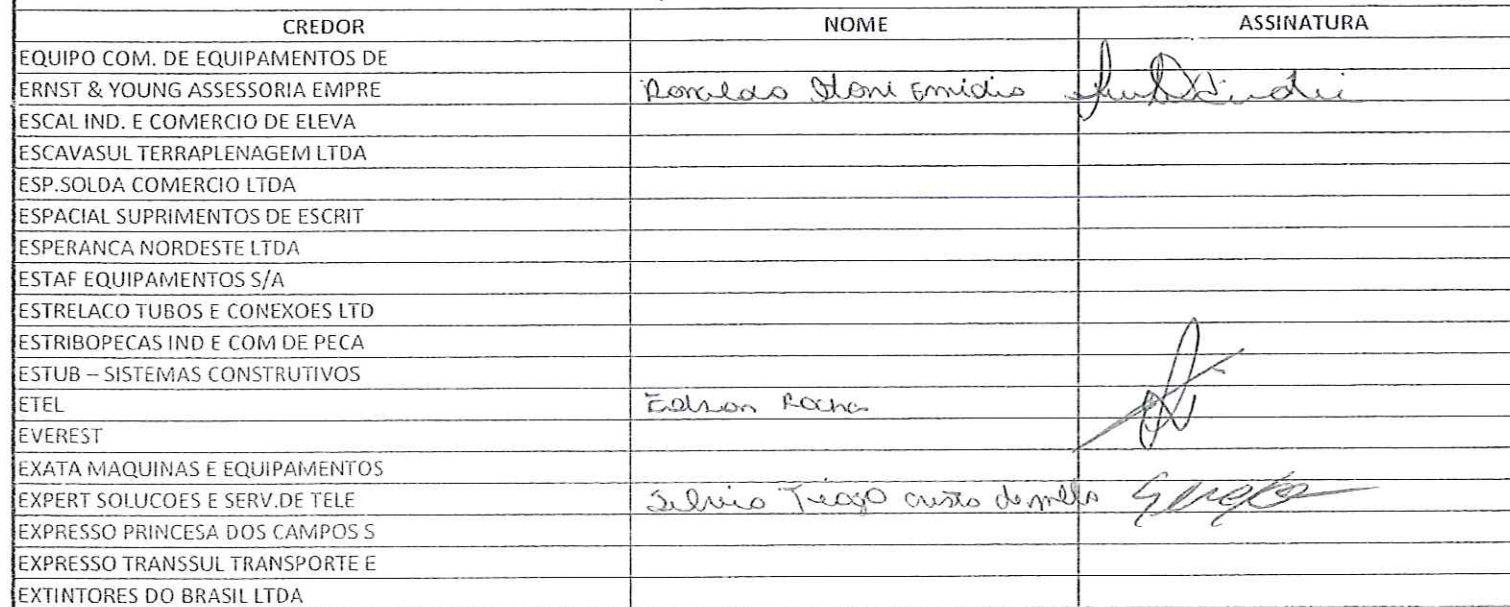 CREDOR NOME ASSINATURA
EQUIPO COM. DE EQUIPAMENTOS DE
ERNST & YOUNG ASSESSORIA EMPRE Ronaldo Emidio
ESCAL IND. E COMERCIO DE ELEVA
ESCAVASUL TERRAPLENAGEM LTDA
ESP.SOLDA COMERCIO LTDA
ESPACIAL SUPRIMENTOS DE ESCRIT
ESPERANCA NORDESTE LTDA
ESTAF EQUIPAMENTOS S/A
ESTRELACO TUBOS E CONEXOES LTD
ESTRIBOPECAS IND E COM DE PECA
ESTUB – SISTEMAS CONSTRUTIVOS
ETEL Edson Rocha
EVEREST
EXATA MAQUINAS E EQUIPAMENTOS
EXPERT SOLUCOES E SERV.DE TELE Silvio Tiago
EXPRESSO PRINCESA DOS CAMPOS S
EXPRESSO TRANSSUL TRANSPORTE E
EXTINTORES DO BRASIL LTDA